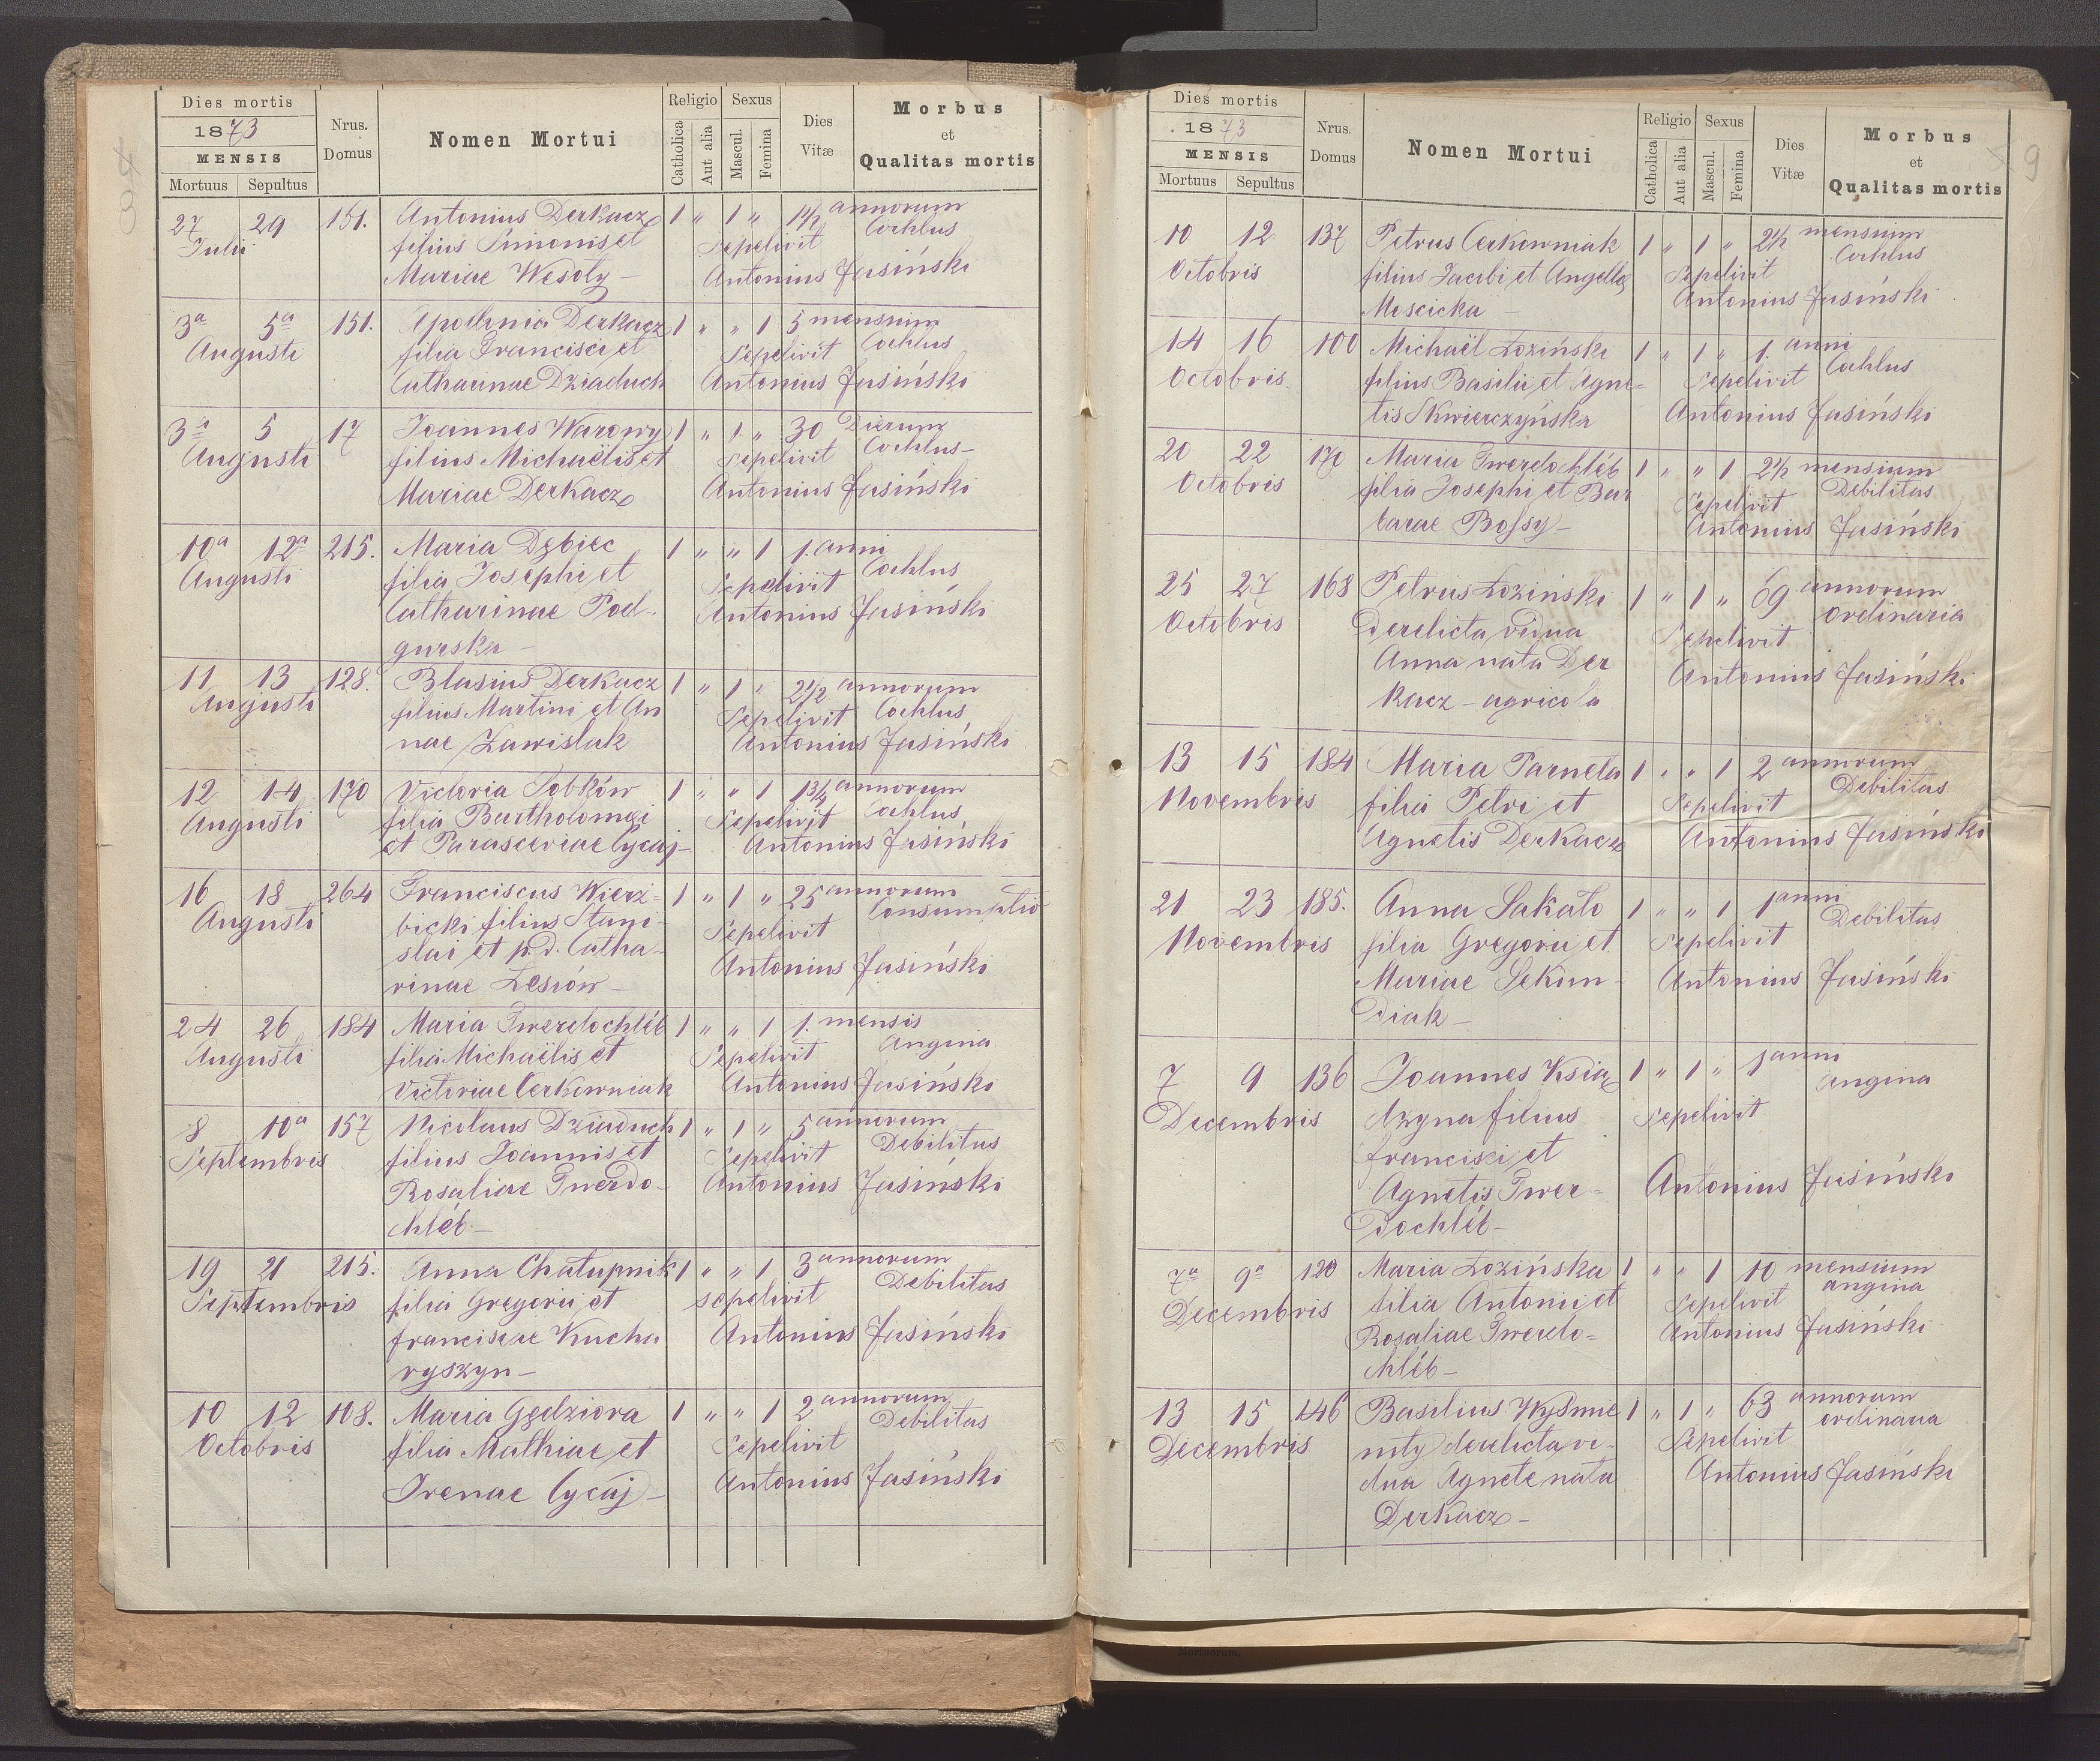 Dies mortis
1873
MENSIS
Mortuus Sepultus
Nrus. Domus
Nomen Mortui
Religio
Catholica
Aut alia
Sexus
Mascul.
Femina
Dies Vitæ
Morbus
et
Qualitas mortis
27 29 151. Antonius Derkacz 1 " 1 " 1 1/2 annorum
Julii filius Simonis et Sepelivit Cochlus
Mariae Wesoły – Antonius Jasiński
3a 5a 151. Apollonia Derkacz 1 " " 1 5 mensium
Augusti filia Francisci et Sepelivit Cochlus
Catharinae Dziaduch Antonius Jasiński
3a 5 17 Joannes Warowy 1 " 1 " 30 Dierum
Augusti filius Michaëlis et Sepelivit Cochlus –
Mariae Derkacz Antonius Jasiński
10a 12a 215. Maria Dębiec 1 " " 1 1. anni
Augusti filia Josephi et Sepelivit Cochlus
Catharinae Pod- Antonius Jasiński
gurska –
11 13 128. Blasius Derkacz 1 " 1 " 2 1/2 annorum
Augusti filius Martini et An Sepelivit Cochlus
nae Zawislak Antonius Jasiński
12 14 170 Victoria Sobków 1 " " 1 1 3/4 annorum
Augusti filia Bartholomęi Sepelivit Cochlus
et Parasceviae Cycaj – Antonius Jasiński
16 18 264 Franciscus Wierz- 1 " 1 " 25 annorum
Augusti bicki filius Stani- Sepelivit Consumptio
slai et p.d. Catha- Antonius Jasiński
rinae Lesiów –
24 26 184 Maria Twerdochléb 1 " " 1 1. mensis
Augusti filia Michaëlis et Sepelivit Angina
Victoriae Cerkowniak Antonius Jasiński
8 10a 157 Nicolaus Dziaduch 1 " 1 " 5 annorum
Septembris filius Joannis et Sepelivit Debilitas
Rosaliae Twerdo- Antonius Jasiński
chléb –
19 21 215. Anna Chałupnik 1 " " 1 3 annorum
Septembris filia Gregorii et sepelivit Debilitas
franciscae Kucha Antonius Jasiński
ryszyn –
10 12 108. Maria Gędziora 1 " " 1 2 annorum
Octobris filia Mathiae et Sepelivit Debilitas
Irenae Cycaj – Antonius Jasiński
9
Dies mortis
1873
MENSIS
Mortuus Sepultus
Nrus. Domus
Nomen Mortui
Religio
Catholica
Aut alia
Sexus
Mascul.
Femina
Dies Vitæ
Morbus
et
Qualitas mortis
10 12 137 Petrus Cerkowniak 1 " 1 " 2 1/2 mensium
Octobris filius Jacobi et Angellę Sepelivit Cochlus
Moscicka – Antonius Jasiński
14 16 100 Michaël Łoziński 1 " 1 " 1. anni
Octobris filius Basilii et Agne= Sepelivit Cochlus
tis Skwierczyńska Antonius Jasiński
20 22 170 Maria Twerdochléb 1 " " 1 2 1/2 mensium
Octobris filia Josephi et Bar Sepelivit Debilitas
barae Bossy – Antonius Jasiński
25 27 168 Petrus Łoziński 1 " 1 " 69 annorum
Octobris Derelicta vidua Sepelivit ordinaria
Anna nata Der Antonius Jasiński
kacz – agricola
13 15 184 Maria Parneta 1 " " 1 2 annorum
Novembris filia Petri et Sepelivit Debilitas
Agnetis Derkacz Antonius Jasiński
21 23 185. Anna Sakało 1 " " 1 1 anni
Novembris filia Gregorii et Sepelivit Debilitas
Mariae Sekun- Antonius Jasiński
diak –
7 9 136 Joannes Ksią 1 " 1 " 1 anni
Decembris dzyna filius Sepelivit angina
francisci et
Agnetis Twer- Antonius Jasiński
dochléb –
7a 9a 120 Maria Łozińska 1 " " 1 10 mensium
Decembris filia Antonii et Sepelivit angina
Rosaliae Twerdo= Antonius Jasiński
chléb –
13 15 146 Basilius Wyśmie 1 " 1 " 63 annorum
Decembris nity derelicta vi- Sepelivit ordinaria
dua Agnete nata Antonius Jasiński
Derkacz –
Mortuorum.